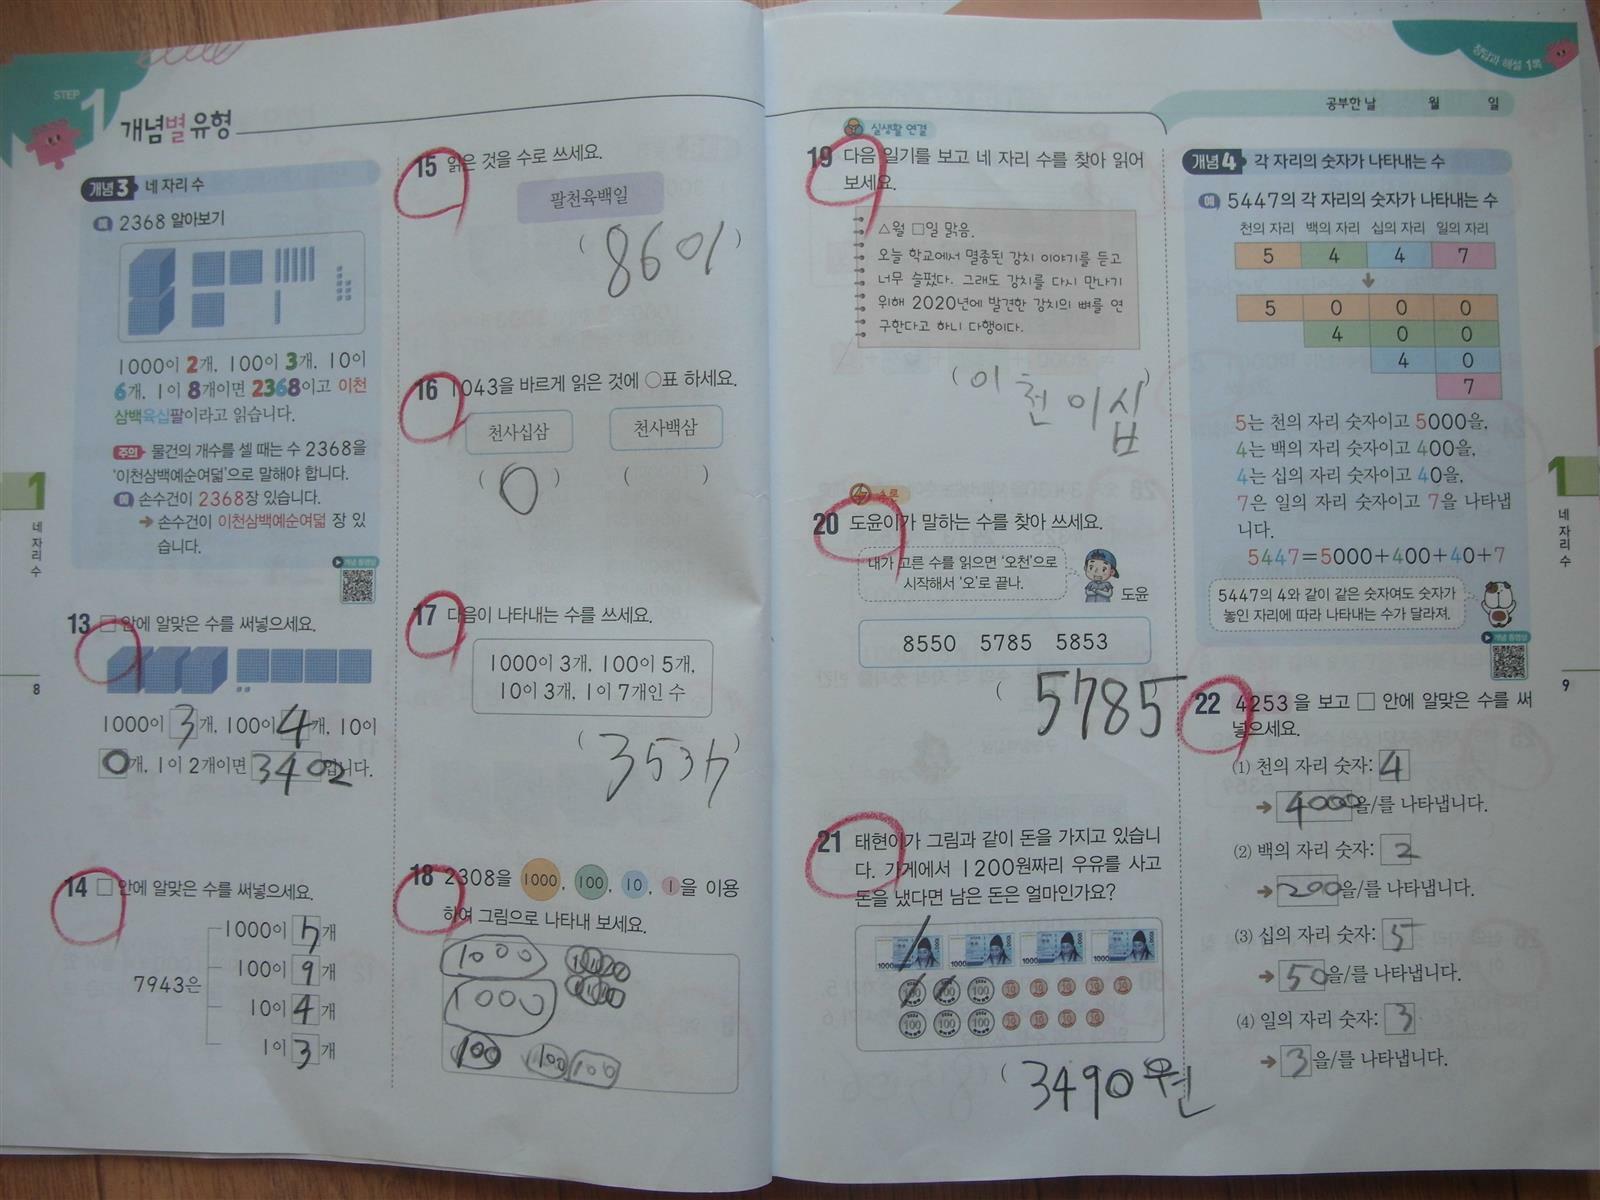 STEP
1
개념별 유형
개념 3 네 자리 수
예 2368 알아보기
1000이 2개, 100이 3개, 10이
6개, 1이 8개이면 2368이고 이천
삼백육십팔이라고 읽습니다.
주의 물건의 개수를 셀 때는 수 2368을
'이천삼백예순여덟'으로 말해야 합니다.
예 손수건이 2368장 있습니다.
→ 손수건이 이천삼백예순여덟 장 있
습니다.
개념 동영상
1
네 자리 수
8
13 □ 안에 알맞은 수를 써넣으세요.
1000이 3개, 100이 4개, 10이
0개, 1이 2개이면 3402입니다.
14 □ 안에 알맞은 수를 써넣으세요.
7943은
1000이 7개
100이 9개
10이 4개
1이 3개
15 읽은 것을 수로 쓰세요.
팔천육백일
( 8601 )
16 1043을 바르게 읽은 것에 ○표 하세요.
천사십삼 천사백삼
( 0 ) ( )
17 다음이 나타내는 수를 쓰세요.
1000이 3개, 100이 5개,
10이 3개, 1이 7개인 수
( 3537 )
18 2308을 1000, 100, 10, 1을 이용
하여 그림으로 나타내 보세요.
1000 1 1 1 1
1000 1 1 1 1
100 100 100
실생활 연결
19 다음 일기를 보고 네 자리 수를 찾아 읽어
보세요.
△월 □일 맑음.
오늘 학교에서 멸종된 강치 이야기를 듣고
너무 슬펐다. 그래도 강치를 다시 만나기
위해 2020년에 발견한 강치의 뼈를 연
구한다고 하니 다행이다.
( 이천이십 )
추론
20 도윤이가 말하는 수를 찾아 쓰세요.
내가 고른 수를 읽으면 '오천'으로
시작해서 '오'로 끝나.
도윤
8550 5785 5853
( 5785
21 태현이가 그림과 같이 돈을 가지고 있습니
다. 가게에서 1200원짜리 우유를 사고
돈을 냈다면 남은 돈은 얼마인가요?
( 3490원
정답과 해설 1쪽
공부한 날 월 일
개념 4 각 자리의 숫자가 나타내는 수
예 5447의 각 자리의 숫자가 나타내는 수
천의 자리 백의 자리 십의 자리 일의 자리
5 4 4 7
5 0 0 0
4 0 0
4 0
7
5는 천의 자리 숫자이고 5000을,
4는 백의 자리 숫자이고 400을,
4는 십의 자리 숫자이고 40을,
7은 일의 자리 숫자이고 7을 나타냅
니다.
5447=5000+400+40+7
5447의 4와 같이 같은 숫자여도 숫자가
놓인 자리에 따라 나타내는 수가 달라져.
개념 동영상
1
네 자리 수
9
22 4253을 보고 □ 안에 알맞은 수를 써
넣으세요.
(1) 천의 자리 숫자: 4
→ 4000을/를 나타냅니다.
(2) 백의 자리 숫자: 2
→ 200을/를 나타냅니다.
(3) 십의 자리 숫자: 5
→ 50을/를 나타냅니다.
(4) 일의 자리 숫자: 3
→ 3을/를 나타냅니다.